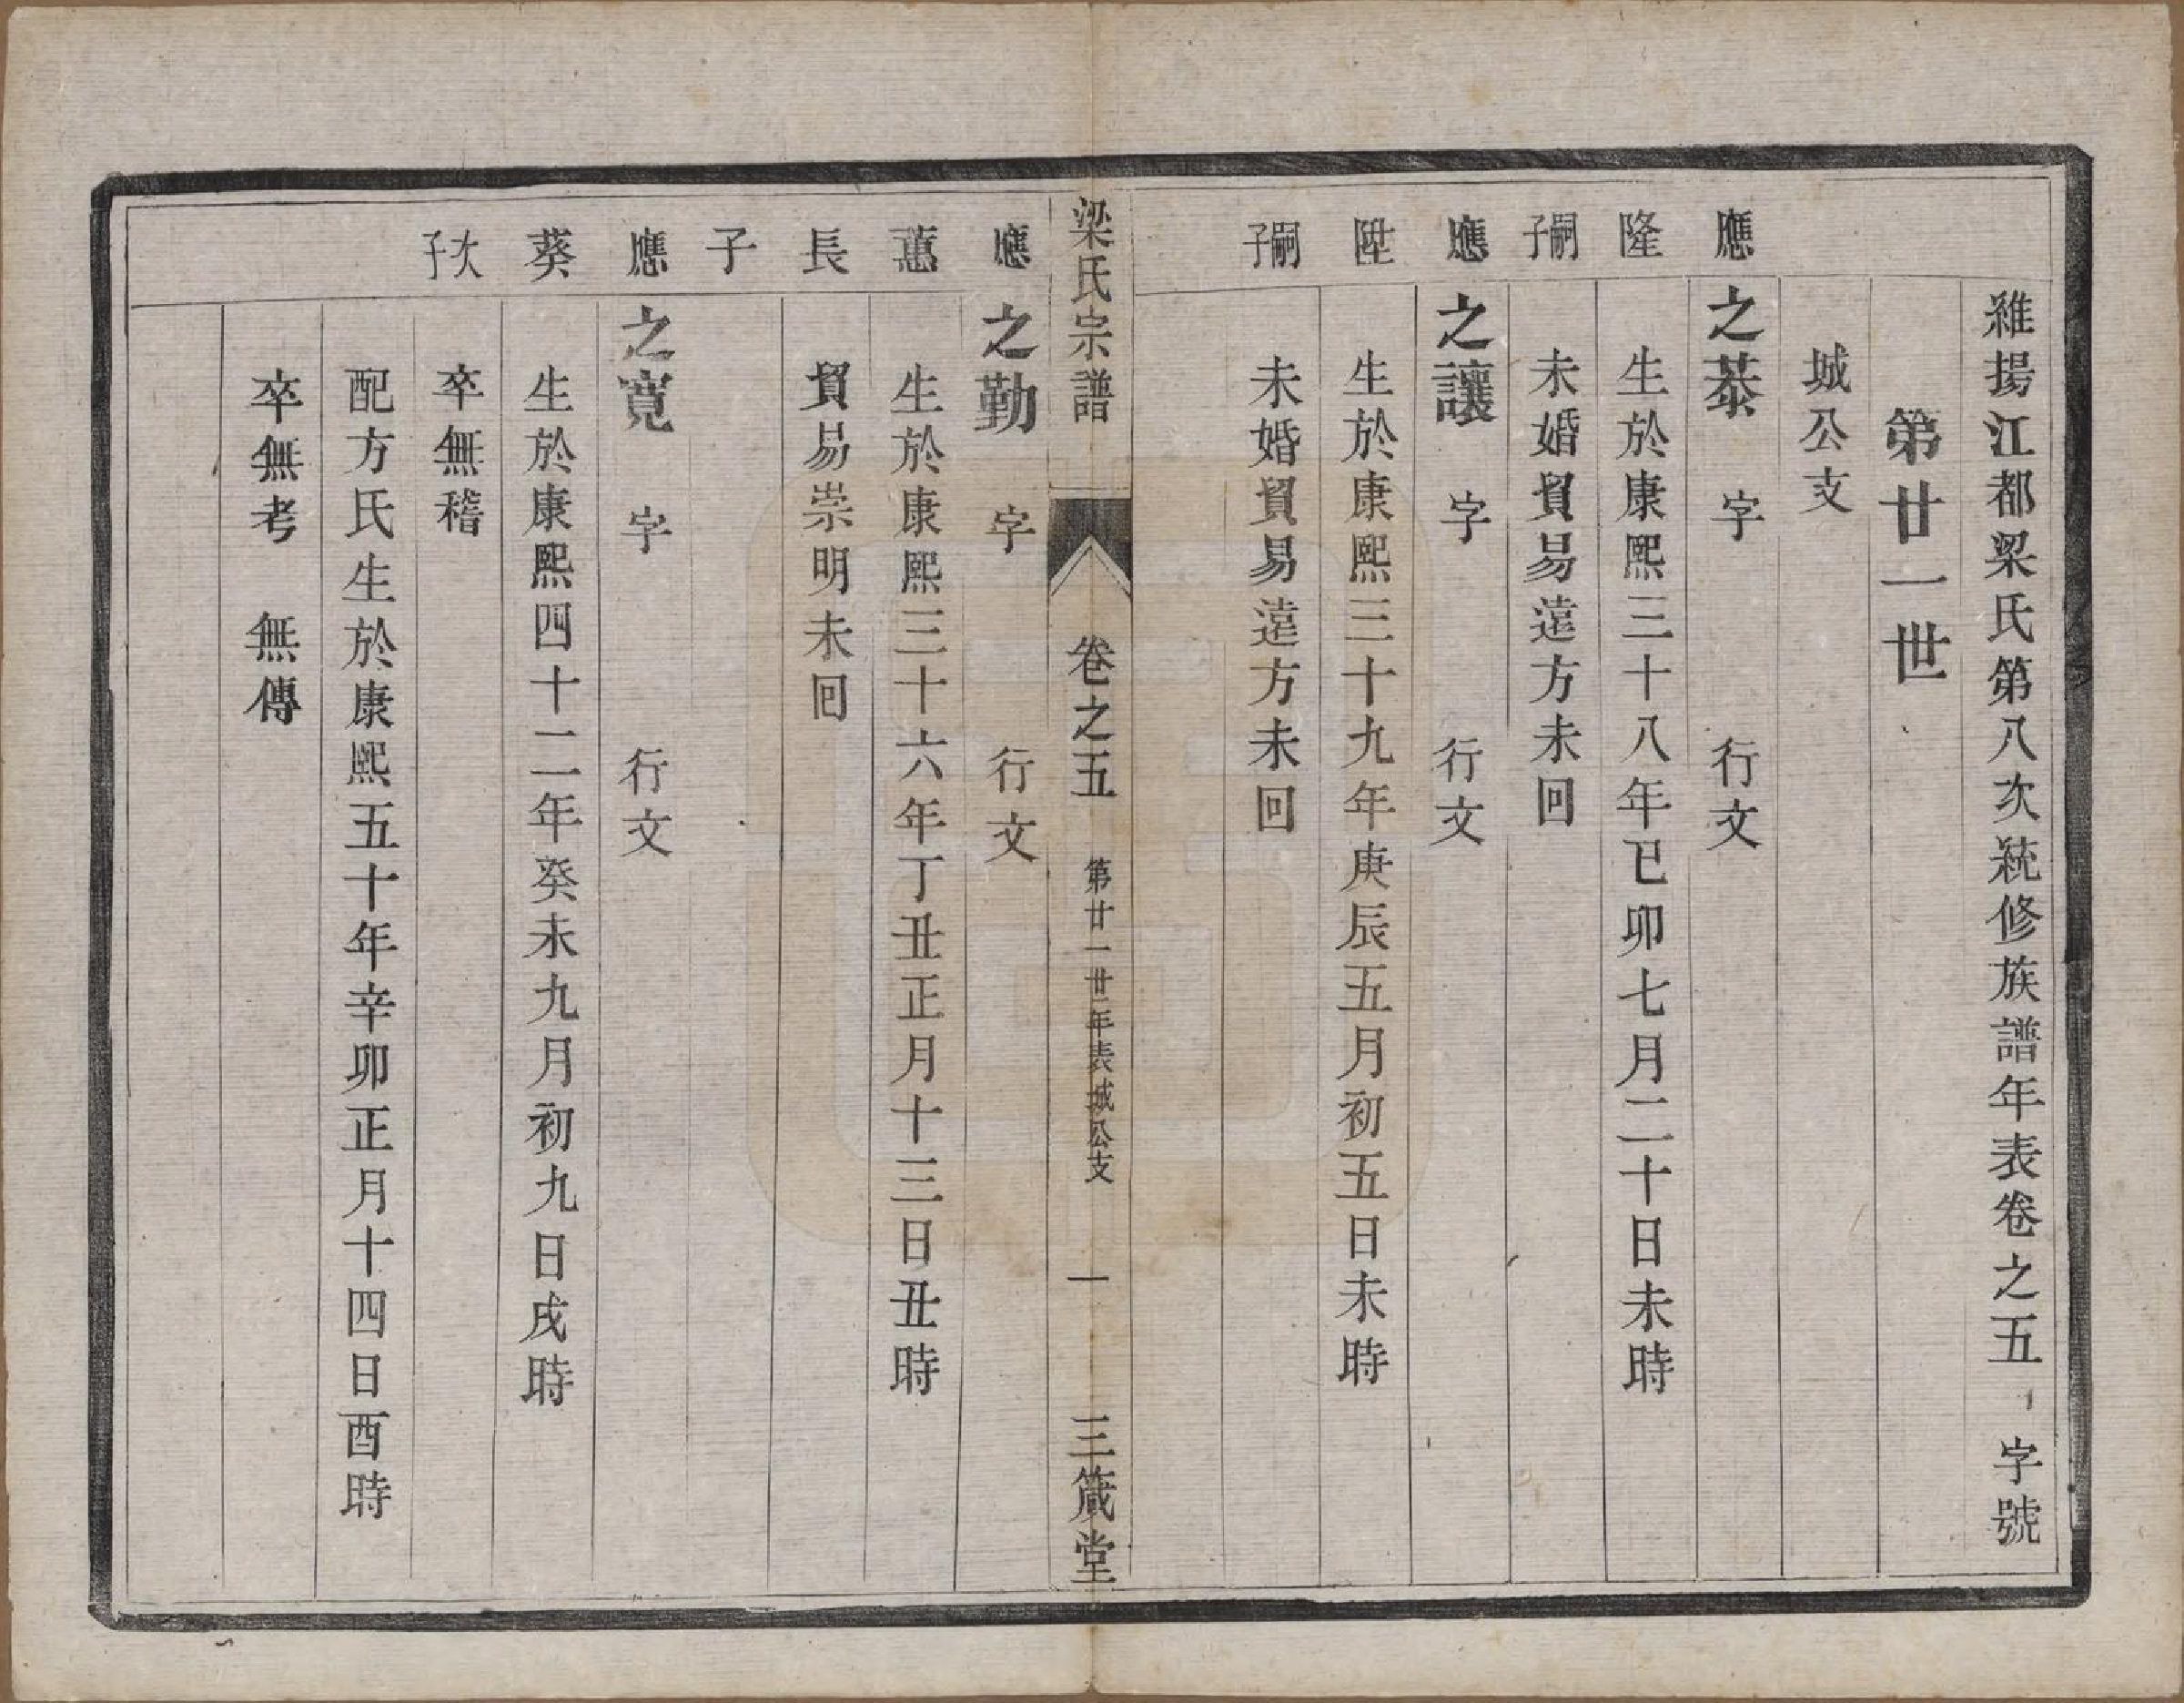 維揚江都梁氏第八次統修族譜年表卷之五 字號
第廿一世
城公支
應隆嗣子
之恭 字 行文
生於康熙三十八年已卯七月二十日未時
未婚貿易遠方未回
應陞嗣子
之讓 字 行文
生於康熙三十九年庚辰五月初五日未時
未婚貿易遠方未回
梁氏宗譜 卷之五 第廿一世年表城公支 一 三箴堂
應蕙長子
之勤 字 行文
生於康熙三十六年丁丑正月十三日丑時
貿易崇明未回
應葵次子
之寬 字 行文
生於康熙四十二年癸未九月初九日戌時
卒無稽
配方氏生於康熙五十年辛卯正月十四日酉時
卒無考 無傳